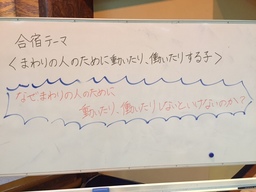 合宿テーマ
<まわりの人のために動いたり、働いたりする子>
なぜまわりの人のために
動いたり、働いたりしないといけないのか?